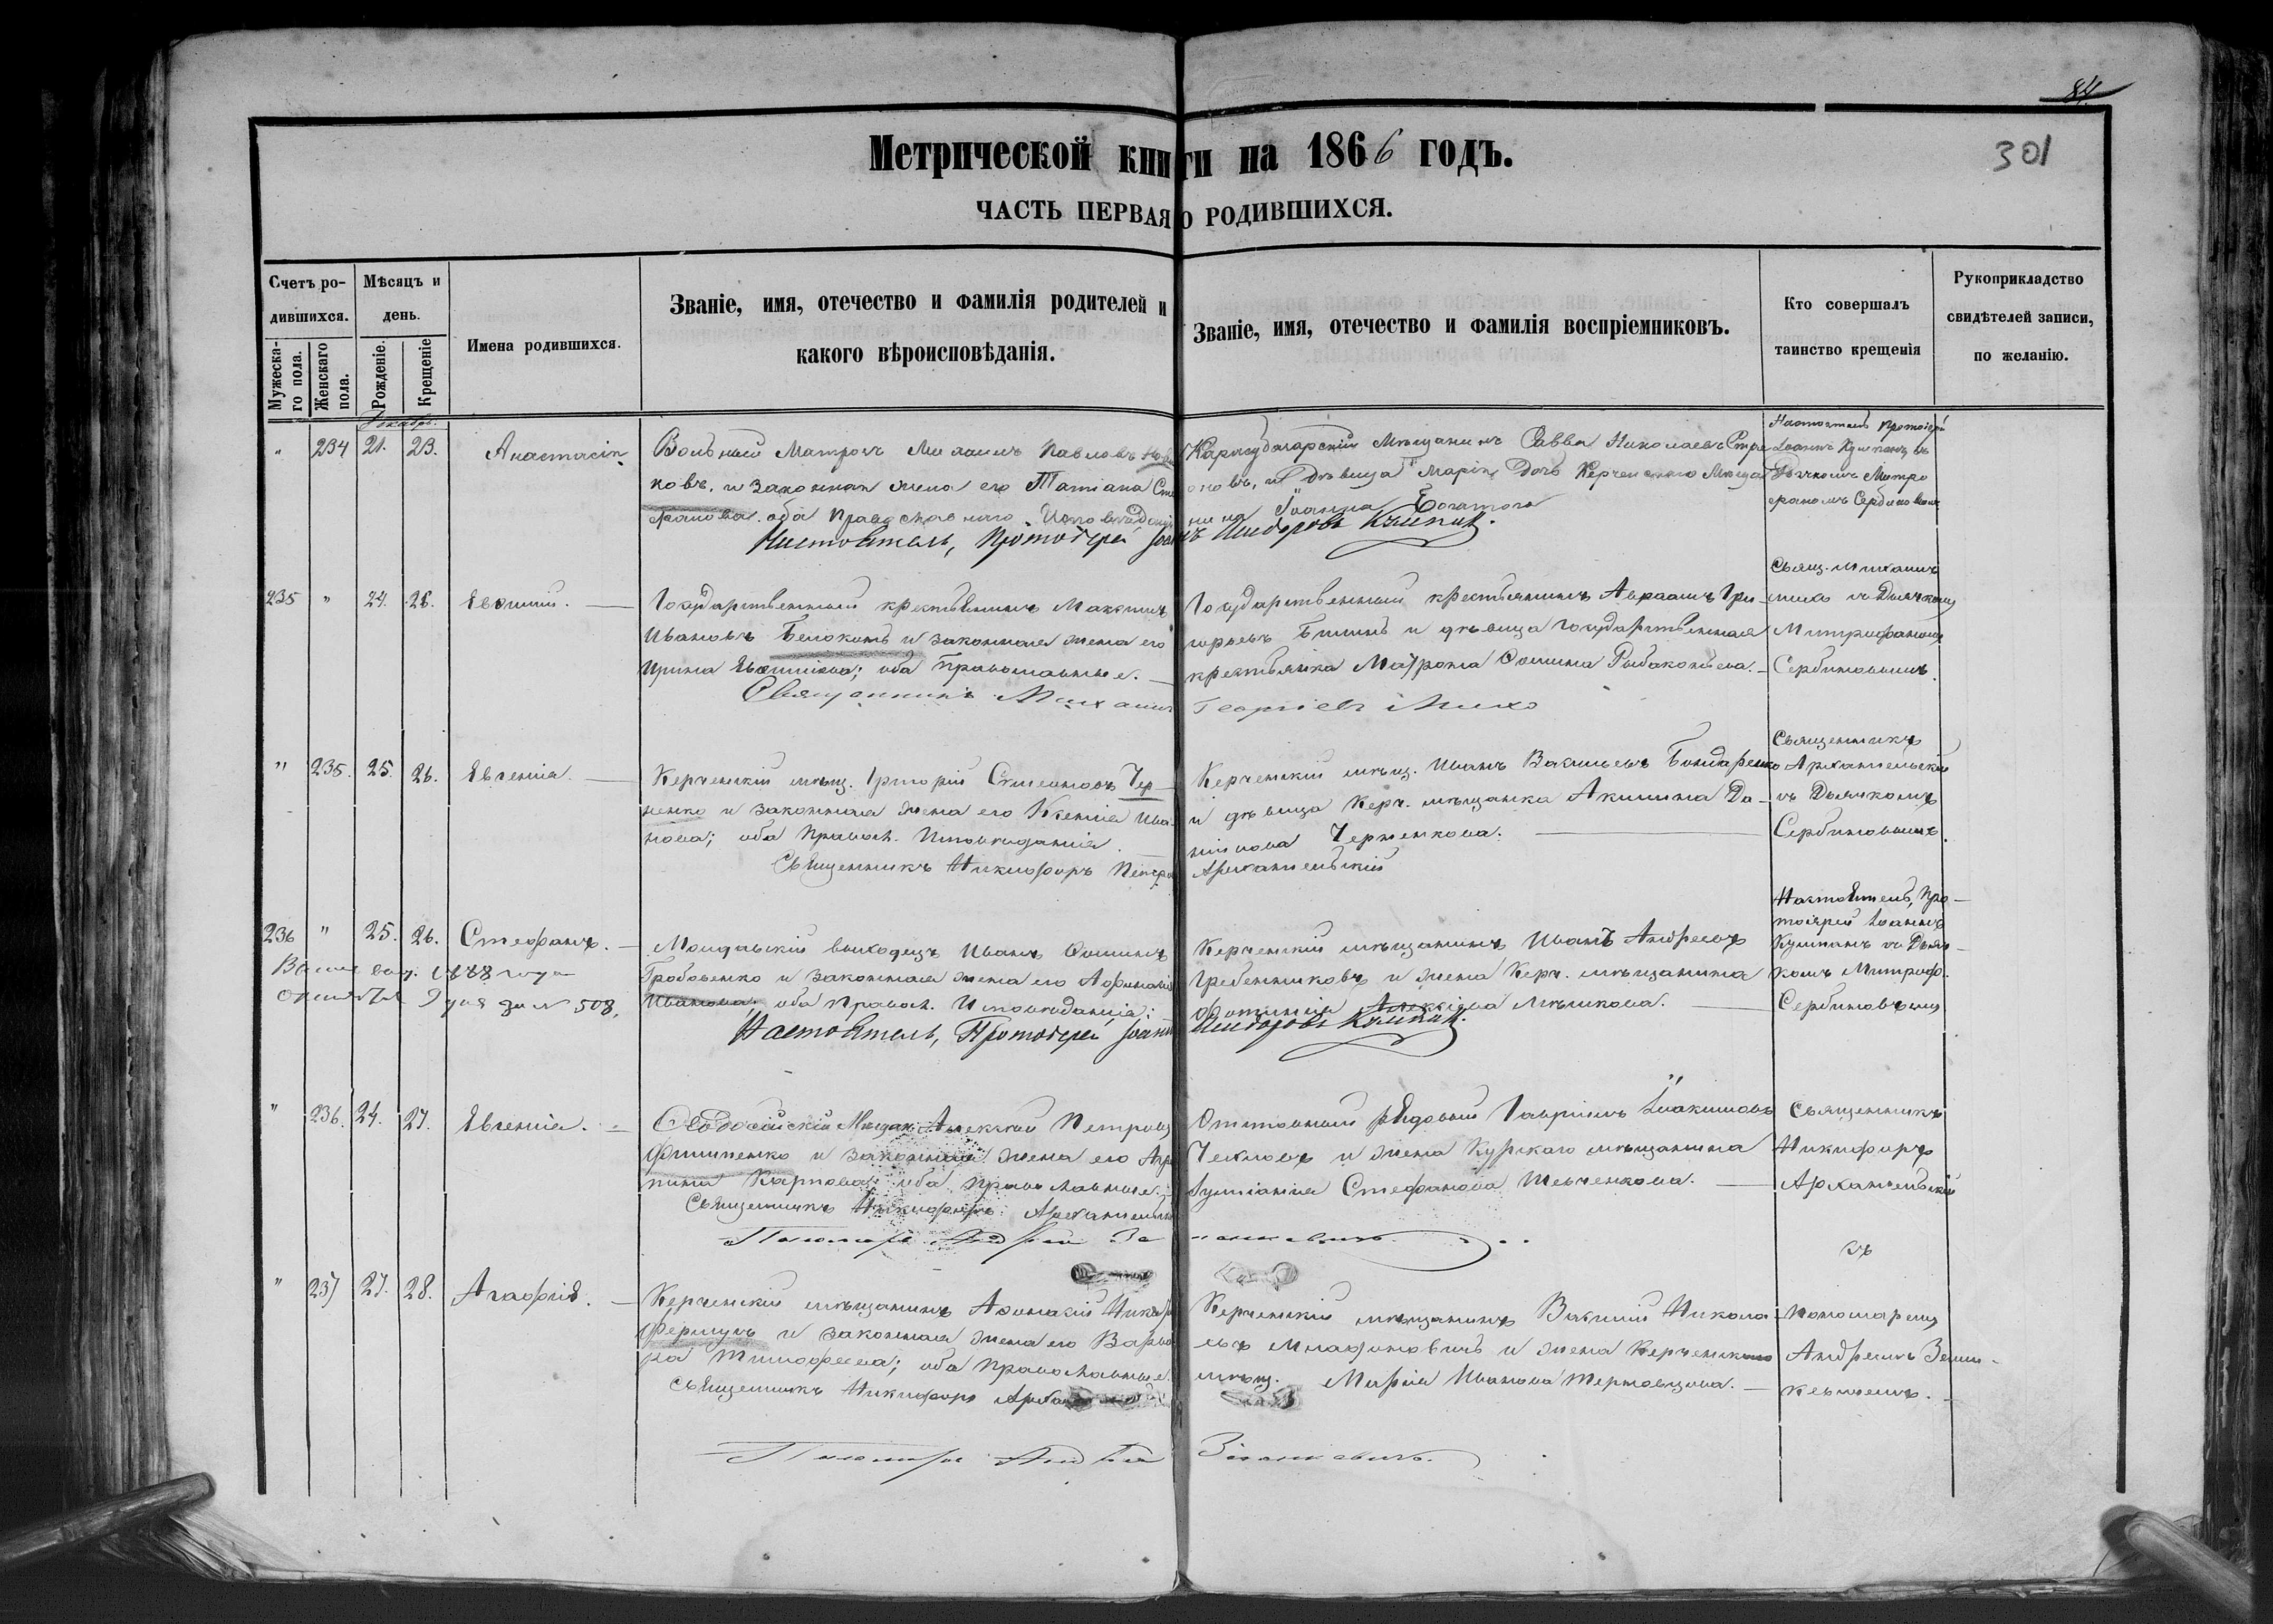 84
301
Метрической книги на 1866 годъ.
ЧАСТЬ ПЕРВАЯ О РОДИВШИХСЯ.
Счетъ родившихся.
Мужескаго пола.
Женскаго пола.
Мѣсяцъ и день.
Рожденіе.
Крещеніе
Имена родившихся.
Званіе, имя, отечество и фамилія родителей и
какого вѣроисповѣданія.
Званіе, имя, отечество и фамилія воспріемниковъ.
Кто совершалъ
таинство крещенія
Рукоприкладство
свидѣтелей записи,
по желанію.
Декабрь.
" 234 21. 23. Анастасія
Вольный Матросъ Михаилъ Павловъ Нови
ковъ, и законная жена его Татіана Сте
фанова оба Православнаго Исповѣданія
Настоятель, Протоіерей Іоаннъ Исидоровъ Кушпан
Карасубазарскій Мѣщанинъ Савва Николаевъ
и Дѣвица Марія Дочь Керченскаго Мѣща
нина Іоанна Богатого
Настоятель Протоіерей
Іоаннъ Кушпанъ съ
Дьячкомъ Митро
фаномъ Сербиновымъ
235 " 24. 26. Евѳимій.
Государственный крестьянинъ Максимъ
Ивановъ Белоконь и законная жена его
Ирина Евѳиміева; оба православные.
Священникъ Михаилъ Георгіевъ Михо
Государственный крестьянинъ Авраамъ Гри-
горьевъ и дѣвица государственная
крестьянка Матрона Ѳомина Рыбаконева.
Свящ. Михаилъ
Михо съ Дьячкомъ
Митрофаномъ
Сербиновымъ.
" 235. 25. 26. Евгенія.
Керченскій мѣщ. Григорій Симеоновъ Чер-
ненко и законная жена его Ксенія Ива-
нова; оба Правосл. Исповѣданія.
Священникъ Никифоръ Петро Архангельскій
Керченскій мѣщ. Иванъ Васильевъ Бондаренко
и дѣвица Керч. мѣщанка Акилина Да-
ніилова Черненкова.
Священникъ
Архангельскій
съ Дьячкомъ
Сербиновымъ.
236 " 25. 26. Стефанъ.
1888 года
Октября 9 дня за № 508,
Молдавскій выходецъ Иванъ Ѳоминъ
Гробовенко и законная жена его Аѳанасія
Иванова, оба Правосл. Исповѣданія:
Настоятель, Протоіерей Іоаннъ Исидоровъ Кушпан.
Керченскій мѣщанинъ Иванъ Андреевъ
Гребенниковъ и жена Керч. мѣщанина
Алексіева Мѣшкова.
Настоятель, Про-
тоіерей Іоаннъ
Кушпанъ съ Дьяч-
комъ Митроф.
Сербиновымъ
" 236. 24. 27. Евгенія.
Ѳеодосійскій Мещан. Алексій Петровъ
Филипенко и законная жена его Агри
пина Карпова; оба православные.
Священникъ Никифоръ Архангельскій
Пономарь Андрей
Отставный рядовый Гавріилъ Іоакимовъ
и жена Курскаго мѣщанина
Стефанова Шевченкова.
Священникъ
Никифоръ
Архангельскій
съ
" 237 27. 28. Агафія.
Керченскій мѣщанинъ Никиф
и законная жена его Варва
ра Тимофеева; оба православные.
Священникъ Никифоръ Архан
Пономарь Андрей
Керченскій мѣщанинъ Василій Никола-
евъ и жена Керченскаго
мѣщ. Марія Иванова Терновцова.
пономаремъ
Андреемъ